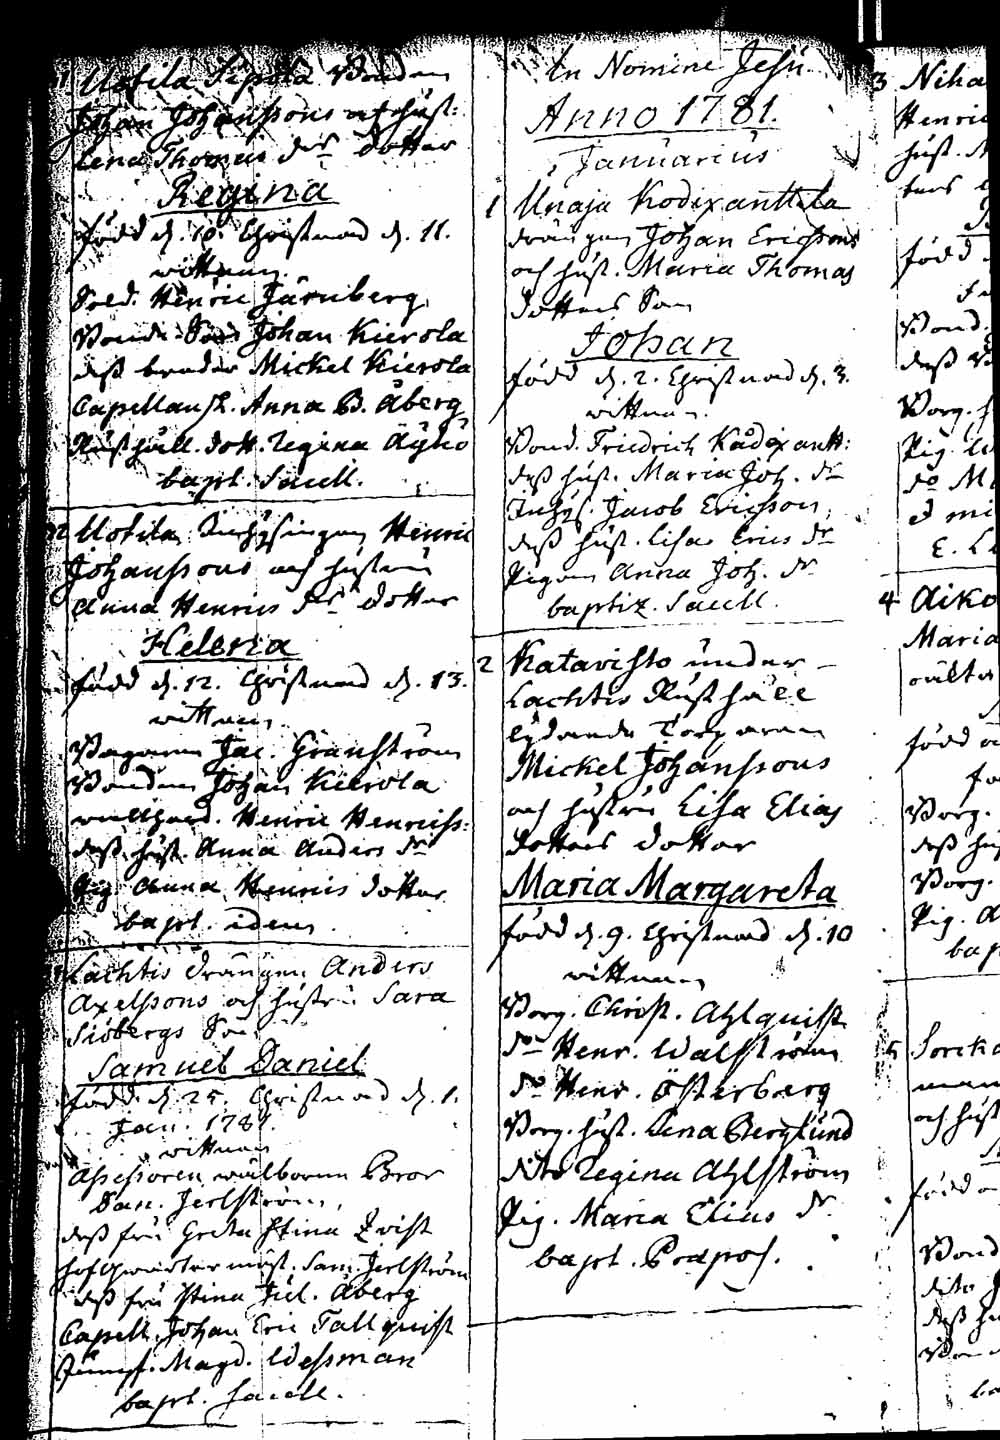 1 Uotila Sipola Bonden
Johan Johanssons och hust:
Lena Thomas dr dotter
Regina
född d. 10. Christnad d. 11.
wittnen.
Sold. Henric Järnberg
Bonde Son Johan Kierola
dess broder Mickel Kierola
Capellans h. Anna B. Åberg
Rusthåll. dott. Regina Äyhö
bapt. Sacell.
2 Uotila Inhysingen Henric
Johanssons och hustru
Anna Henrics dr dotter
Helena
född d. 12. Christnad d. 13.
wittnen.
Jac. Granström
Bonden Johan Kierola
Henric Henricss:
dess hust. Anna Anders dr
Pig. Anna Henrics dotter
bapt. idem.
Lachtis drängen Anders
Axelssons och hustru Sara
Siöbergs Son
Samuel Daniel
född d. 25. Christnad d. 1.
Jan. 1781.
wittnen
Assessoren wälborne Bror
Dan. Jerlström,
dess fru Greta Stina Qvist
Sam. Jerlström
dess fru Stina Jul. Åberg
Capell. Johan Eric Tallquist
Jumpf. Magd. Wessman
bapt. Sacell.
In Nomine Jesu
Anno 1781.
Januarius
1 Unaja Kodixanttila
drängen Johan Ericssons
och hust. Maria Thomas
dotters Son
Johan
född d. 2. Christnad d. 3.
wittnen.
Bond. Friedrich Kådixantt:
dess hust. Maria Joh. dr
Inhys. Jacob Ericsson,
dess hust. Lisa Erics dr
Pigan Anna Joh. dr
baptiz. Sacell.
2 Katavisto under
Lachtis Rusthåll
lydande Torparen
Mickel Johanssons
och hustru Lisa Elias
dotters dotter
Maria Margareta
född d. 9. Christnad d. 10
wittnen
Borg. Christ. Ahlquist
do Henr. Walström
do Henr. Österberg
Borg. hust. Lena Berglund
dito Regina Ahlström
Pig. Maria Elias dr
bapt. Præpos.
3 Niha
Henric
hust. M
född
Bond.
dess
Borg.
Pig.
do M
E. L
4 Äiko
Maria
född
Borg.
dess hus
Borg.
Pig. A
bap
5 Sorcka
och hust
född
Bond
dito J
dess hu
ba